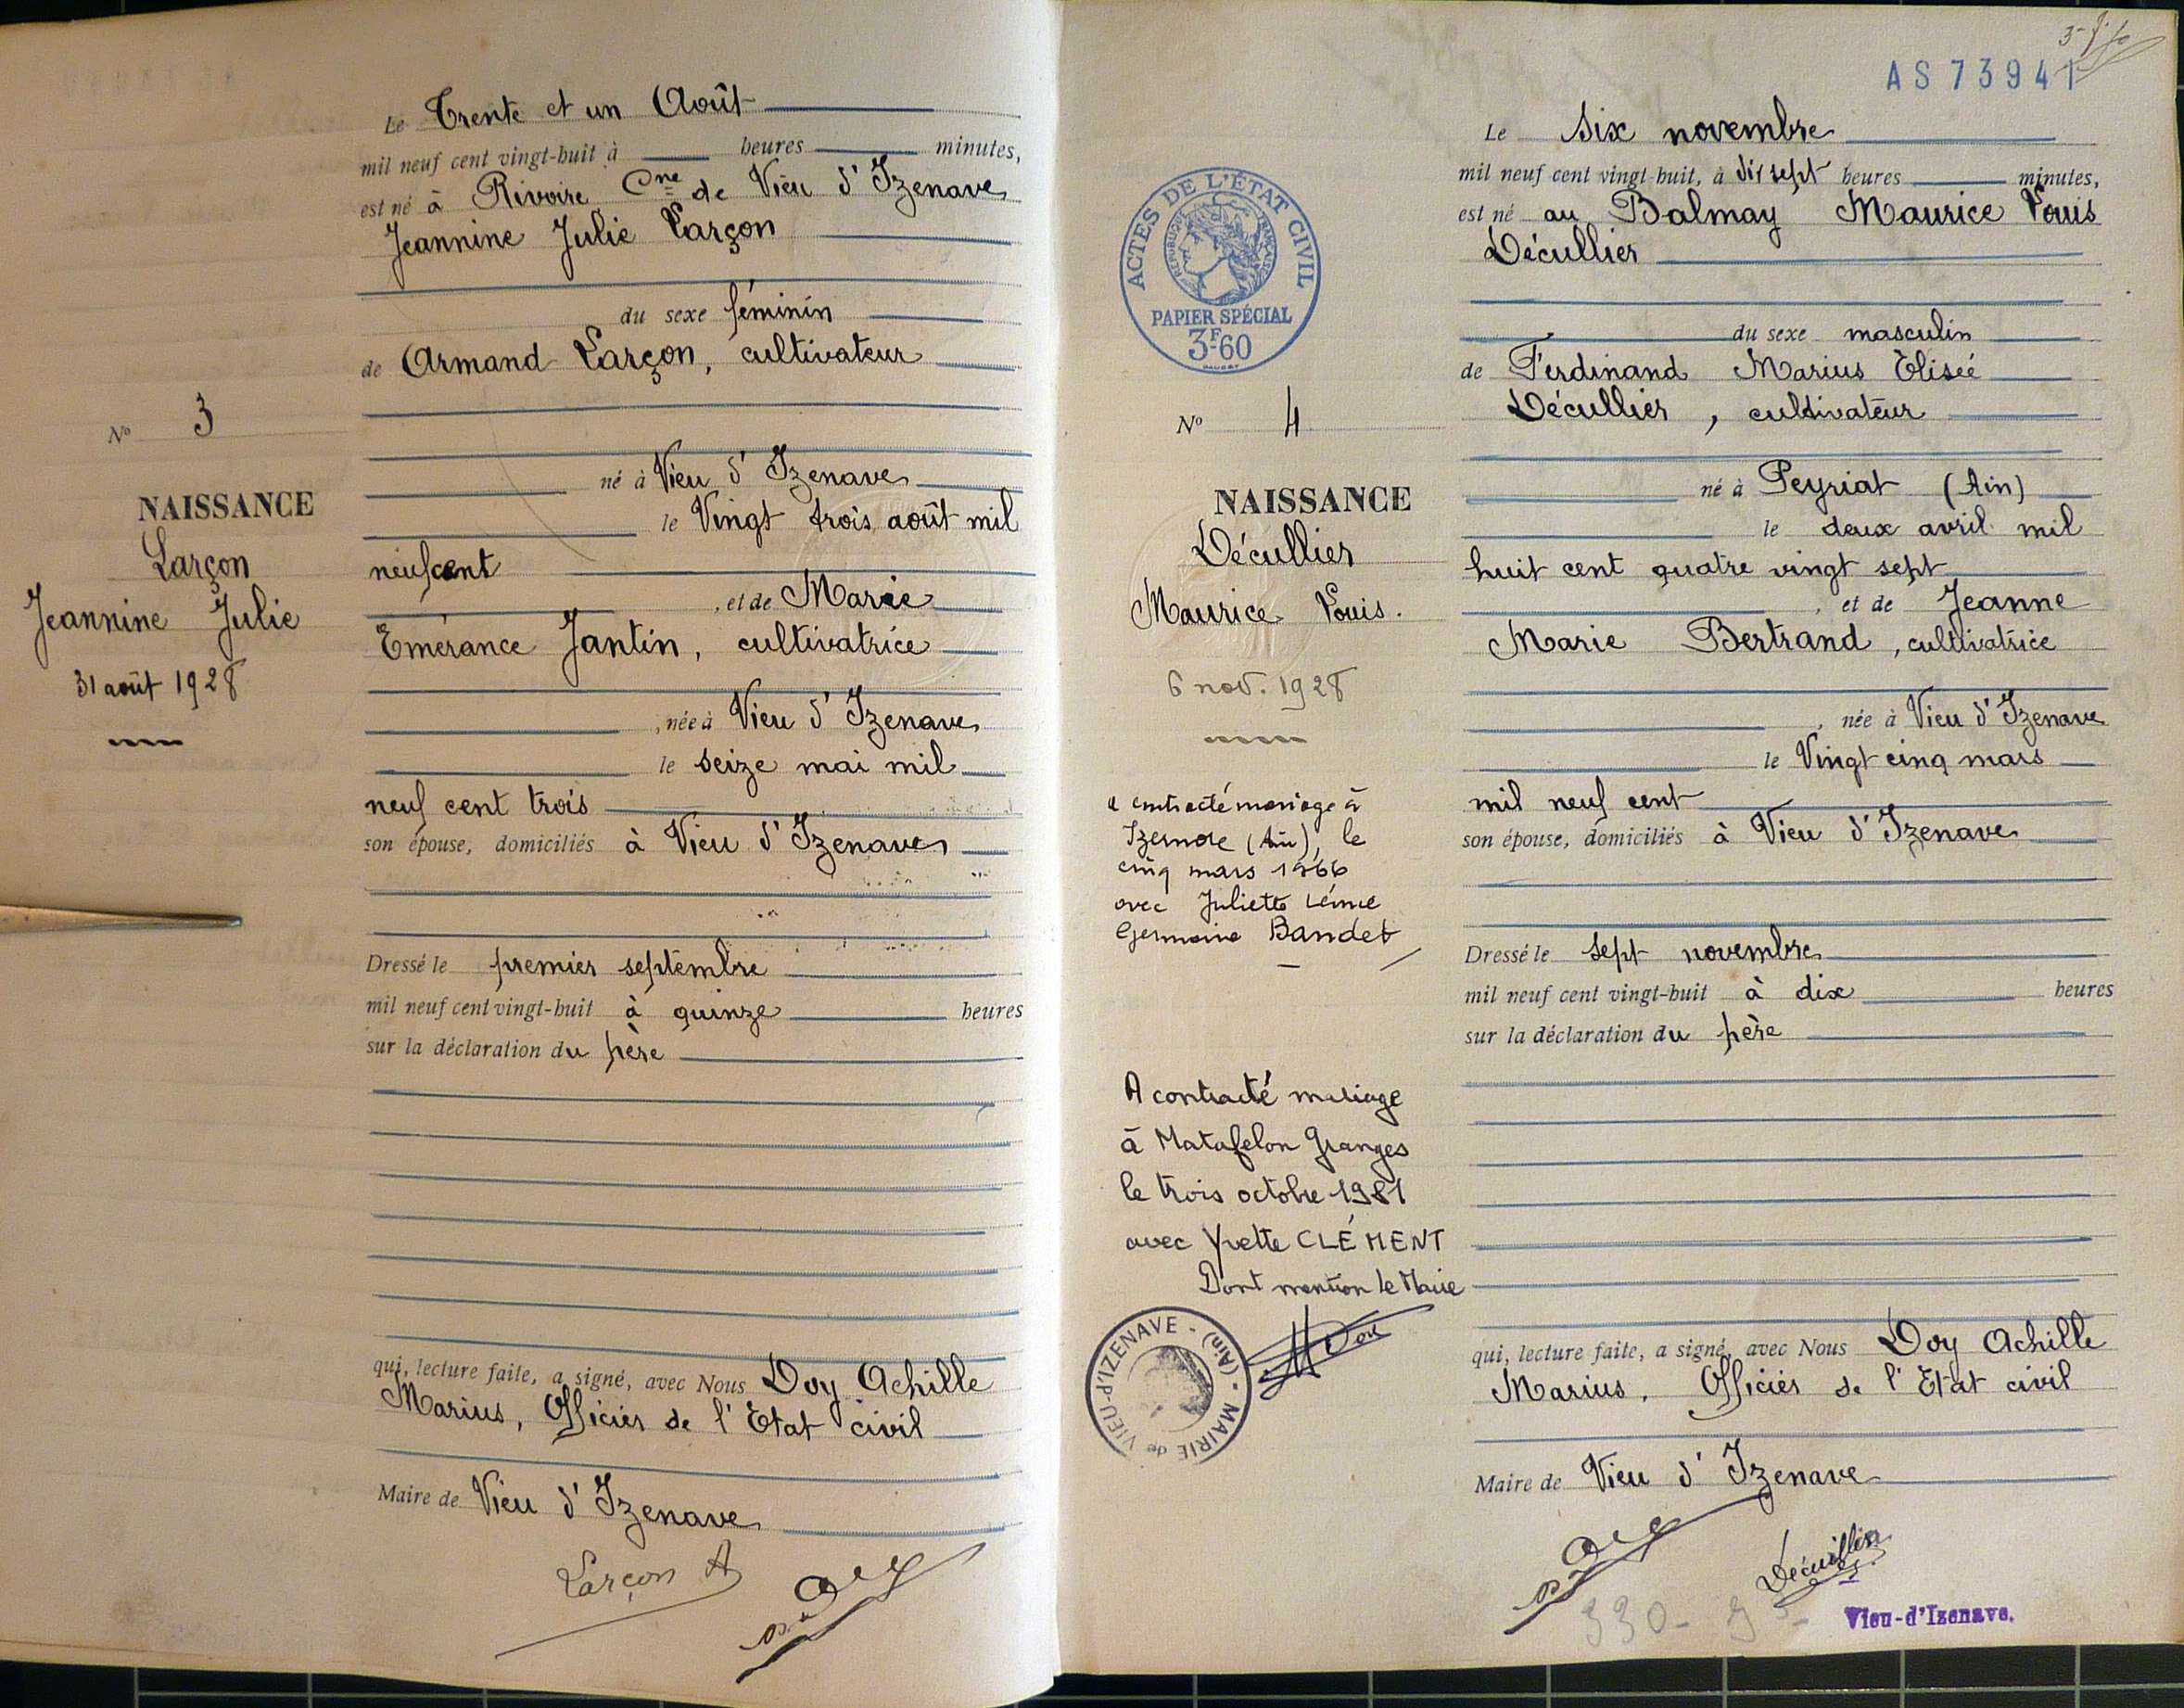 Le Trente et un Août
mil neuf cent vingt-huit à heures minutes,
est né à Rivoire Cne de Vieu d'Izenave
Jeannine Julie Larçon
du sexe féminin
de Armand Larçon, cultivateur
né à Vieu d'Izenave
le Vingt trois août mil
neuf cent
, et de Marie
Emérance Jantin, cultivatrice
, née à Vieu d'Izenave
le seize mai mil
neuf cent trois
son épouse, domiciliés à Vieu d'Izenave
Dressé le premier septembre
mil neuf cent vingt-huit à quinze heures
sur la déclaration du père
qui, lecture faite, a signé, avec Nous Doy Achille
Marius, Officier de l'Etat civil
Maire de Vieu d'Izenave
Larçon A
No 3
NAISSANCE
Larçon
Jeannine Julie
31 août 1928
AS73941
ACTES DE L'ÉTAT CIVIL
RÉPUBLIQUE FRANÇAISE
PAPIER SPÉCIAL
3F.60
No 4
NAISSANCE
Décullier
Maurice Louis.
6 nov. 1928
a contracté mariage à
Izernore (Ain), le
cinq mars 1966
avec Juliette
Germaine Bandet
A contracté mariage
à Matafelon Granges
le trois octobre 1981
avec Yvette CLÉMENT
Dont mention le Maire
MAIRIE de VIEU-d'IZENAVE - (Ain) -
Le six novembre
mil neuf cent vingt-huit, à dix sept heures minutes,
est né au Balmay Maurice Louis
Décullier
du sexe masculin
de Ferdinand Marius Elisée
Décullier, cultivateur
né à Peyriat (Ain)
le deux avril mil
huit cent quatre vingt sept
, et de Jeanne
Marie Bertrand, cultivatrice
, née à Vieu d'Izenave
le Vingt cinq mars
mil neuf cent
son épouse, domiciliés à Vieu d'Izenave
Dressé le sept novembre
mil neuf cent vingt-huit à dix heures
sur la déclaration du père
qui, lecture faite, a signé, avec Nous Doy Achille
Marius, Officier de l'Etat civil
Maire de Vieu d'Izenave
Décullier
Vieu-d'Izenave.